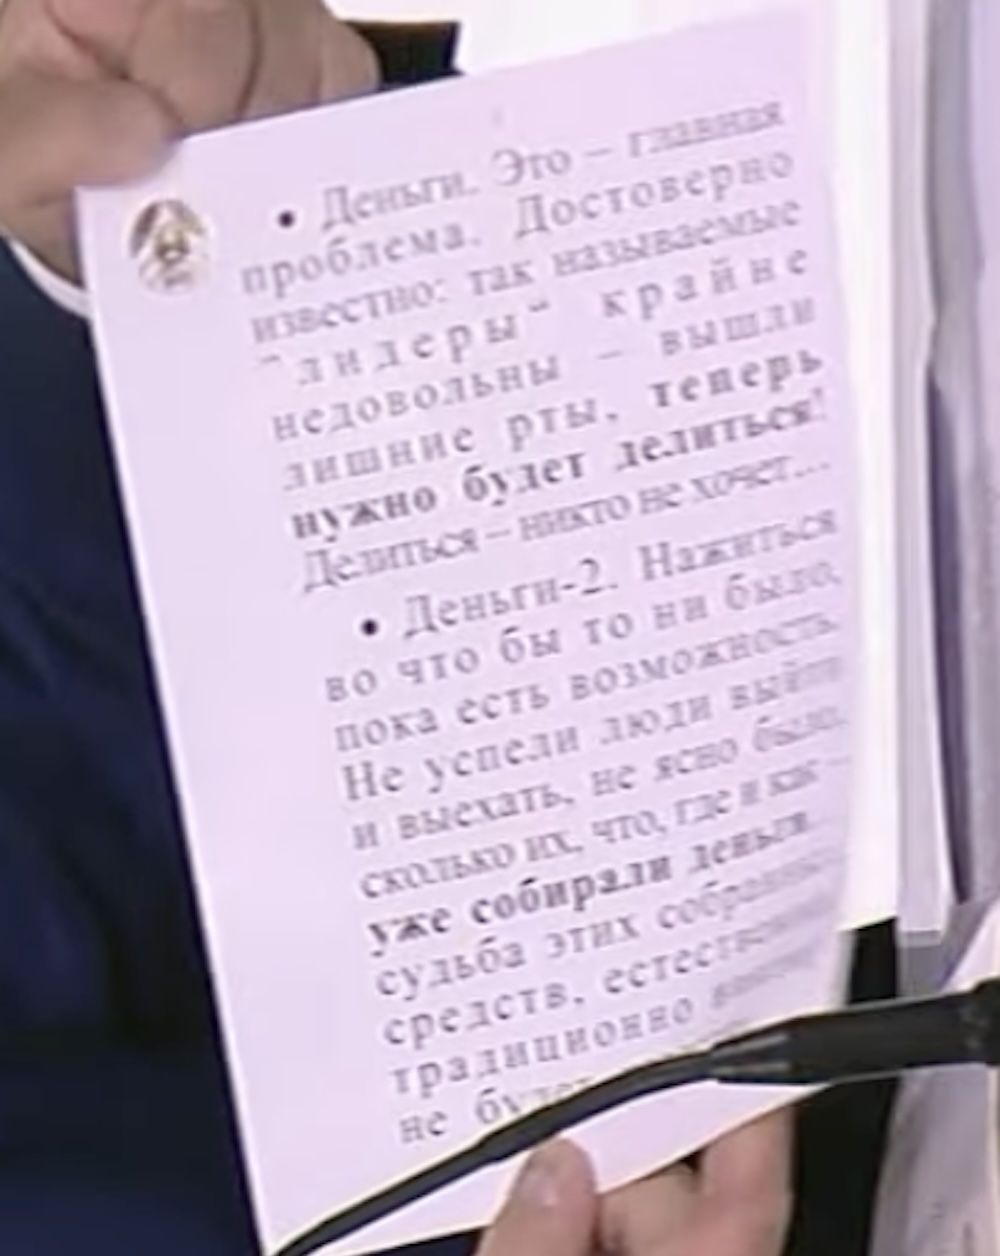 • Деньги. Это – главная
проблема. Достоверно
известно: так называемые
"лидеры" крайне
недовольны – вышли
лишние рты, теперь
нужно будет делиться!
Делиться – никто не хочет...
• Деньги-2. Нажиться
во что бы то ни было,
пока есть возможность.
Не успели люди выйти
и выехать, не ясно было,
сколько их, что, где и как –
уже собирали деньги.
судьба этих
средств,
традиционно
не